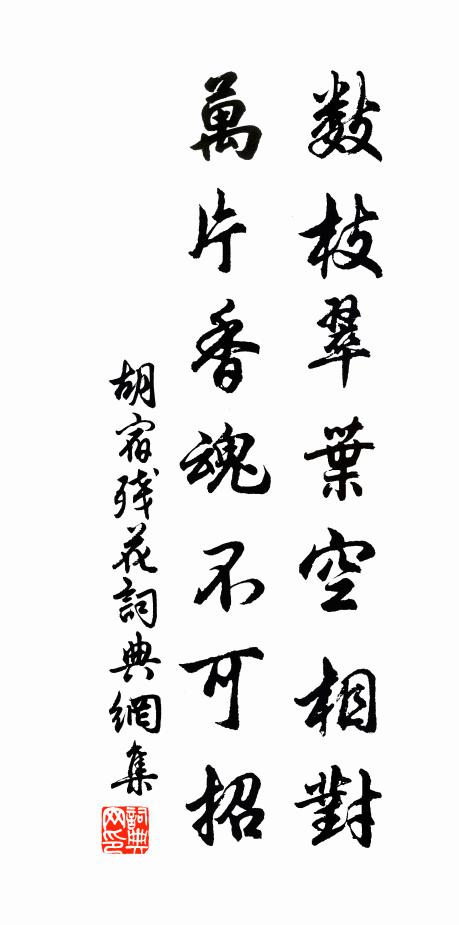 數枝翠葉空相對
萬片香魂不可招
胡宿殘花詞典網集
詞典網印